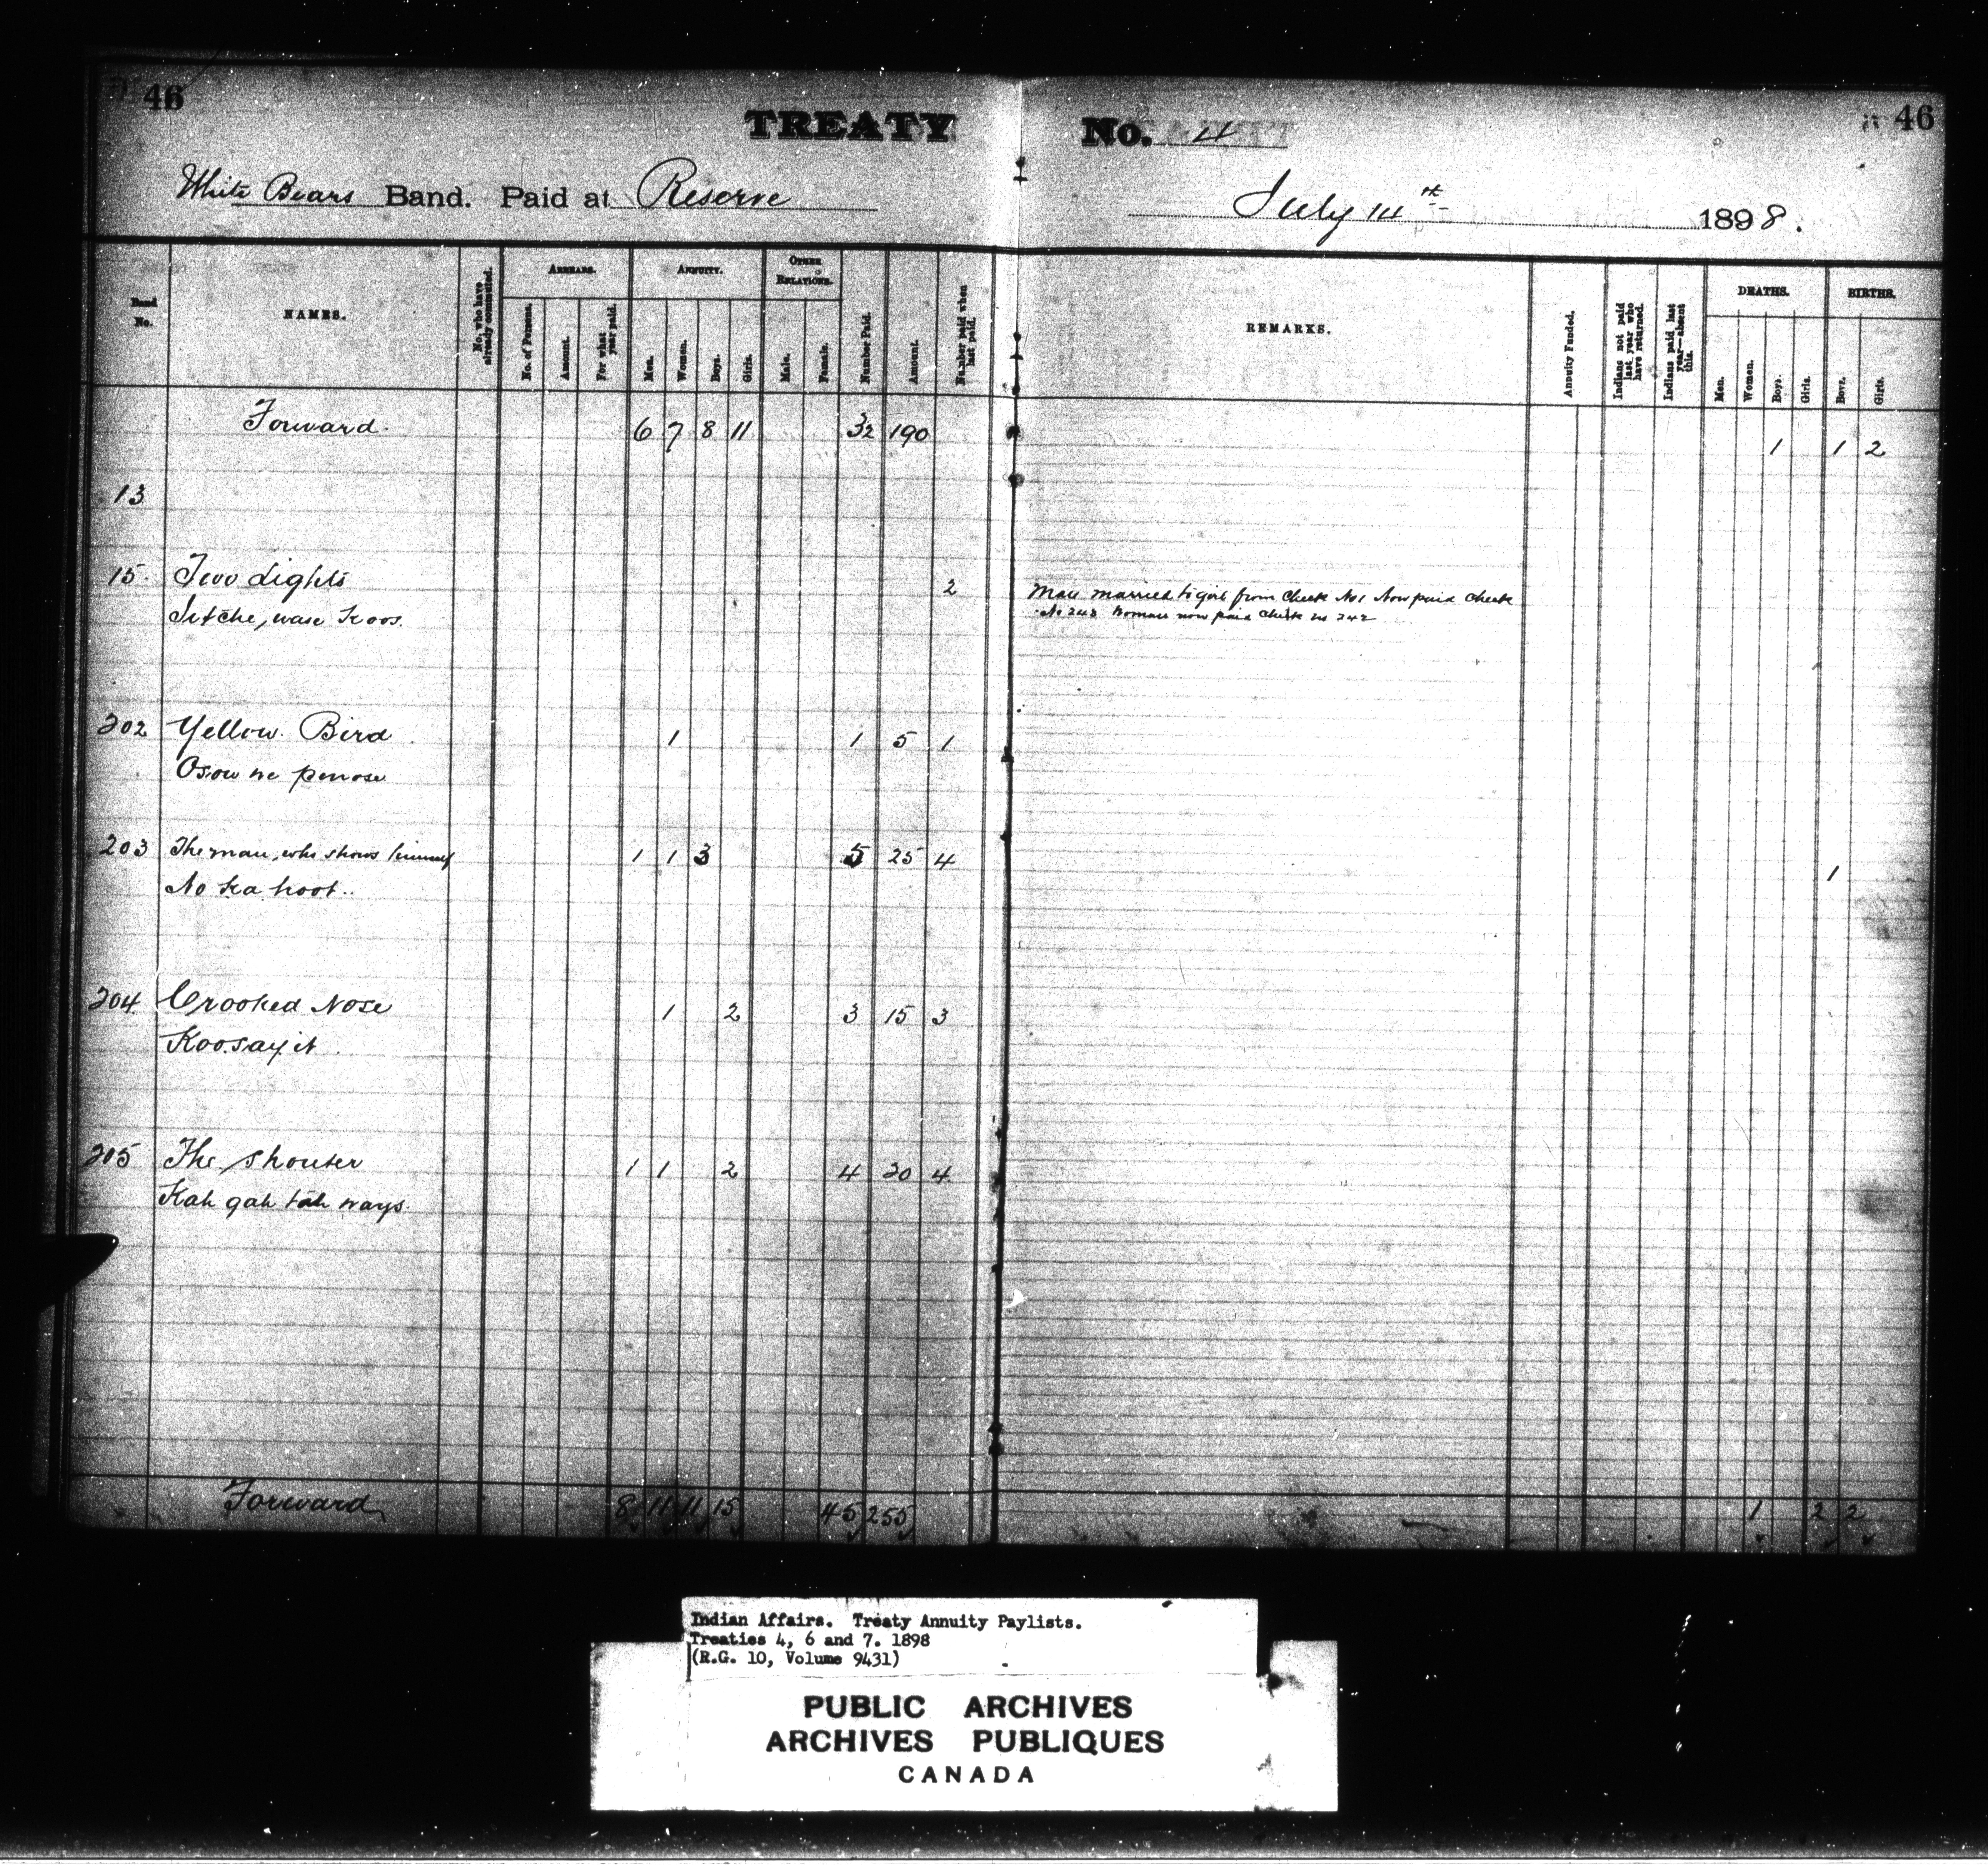 46
46
TREATY No. 4
White Bears Band. Paid at Reserve
July 14th 1898.
Band No.
NAMES.
No. who have already commuted.
ARREARS.
No. of Persons.
Amount.
For what year paid.
ANNUITY.
Men.
Women.
Boys.
Girls.
OTHER RELATIONS.
Male.
Female.
Number Paid.
Amount.
Number paid when last paid.
REMARKS.
Annuity Funded.
Indians not paid last year who have returned.
Indians paid last year—absent this.
DEATHS.
Men.
Women.
Boys.
Girls.
BIRTHS.
Boys.
Girls.
Forward 6 7 8 11 32 190 1 1 2
13
15 Two Lights 2 Man married to girl from Check No 1 Now paid Check
No 243 Woman now paid Check no 242
202 Yellow Bird 1 1 5 1
Osow ne penose
203 The man who shows himself 1 1 3 5 25 4 1
No ka hoot
204 Crooked Nose 1 2 3 15 3
Koo say it
205 The Shouter 1 1 2 4 20 4
Kah gah tah ways.
Forward 8 11 11 15 45 255 1 2 2
Indian Affairs. Treaty Annuity Paylists.
Treaties 4, 6 and 7. 1898
(R.G. 10, Volume 9431)
PUBLIC ARCHIVES
ARCHIVES PUBLIQUES
CANADA